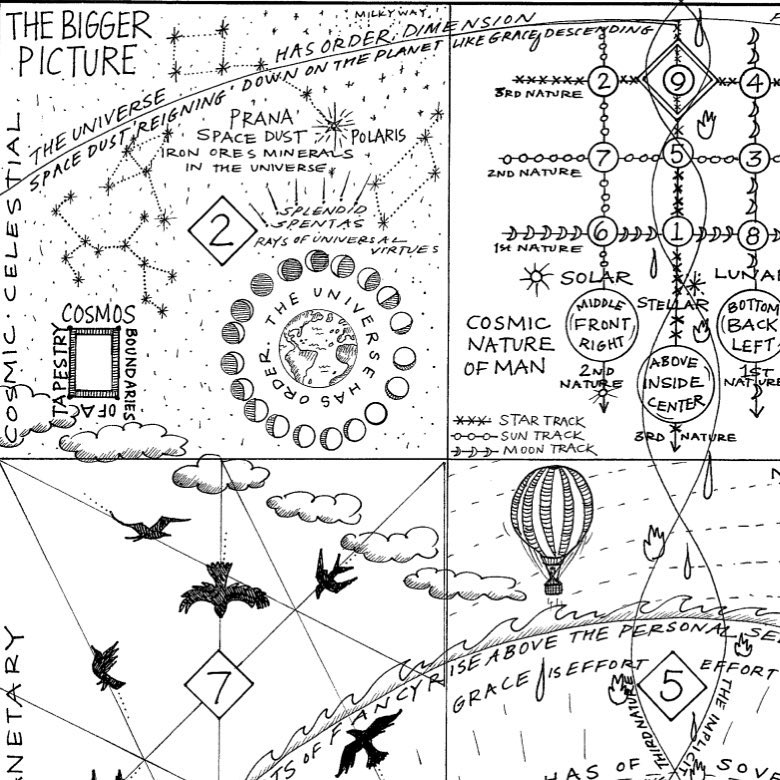 THE BIGGER
PICTURE
MILKY WAY
THE UNIVERSE HAS ORDER, DIMENSION
SPACE DUST 'REIGNING' DOWN ON THE PLANET LIKE GRACE DESCENDING
PRANA
SPACE DUST
IRON ORES MINERALS
IN THE UNIVERSE
POLARIS
SPLENDID
SPENTAS
RAYS OF UNIVERSAL
VIRTUES
2
COSMIC · CELESTIAL
COSMOS
TAPESTRY
BOUNDARIES
OF A
THE UNIVERSE HAS ORDER
2
9
4
3RD NATURE
7
5
3
2ND NATURE
6
1
8
1ST NATURE
SOLAR
STELLAR
LUNAR
COSMIC
NATURE
OF MAN
MIDDLE
FRONT
RIGHT
2ND
NATURE
ABOVE
INSIDE
CENTER
3RD NATURE
BOTTOM
BACK
LEFT
1ST
NATURE
STAR TRACK
SUN TRACK
MOON TRACK
NETARY
7
TS OF FANCY RISE ABOVE THE PERSONAL SE
GRACE IS EFFORT
EFFORT
5
THIRD NATURE
THE IMPLIC
HAS OF
SOVE